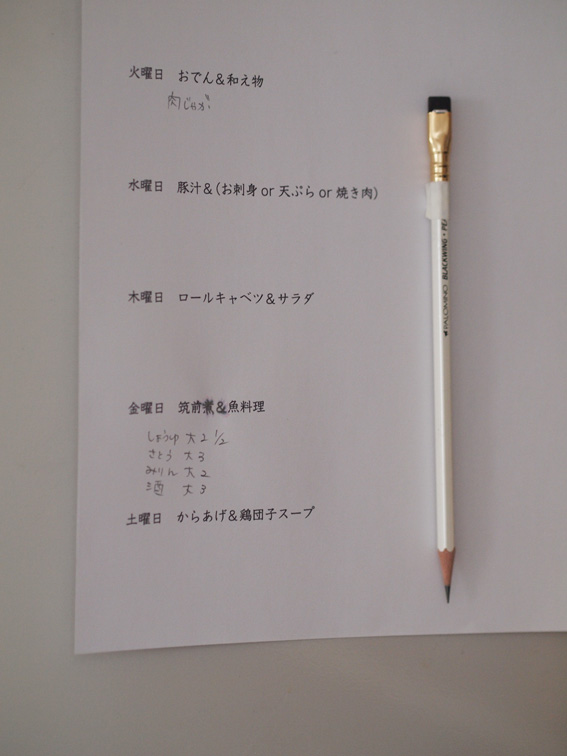 火曜日 おでん＆和え物
肉じゃが
水曜日 豚汁＆(お刺身 or 天ぷら or 焼き肉)
木曜日 ロールキャベツ＆サラダ
金曜日 筑前煮＆魚料理
しょうゆ 大 2 1/2
さとう 大 3
みりん 大 2
酒 大 3
土曜日 からあげ＆鶏団子スープ
PALOMINO BLACKWING